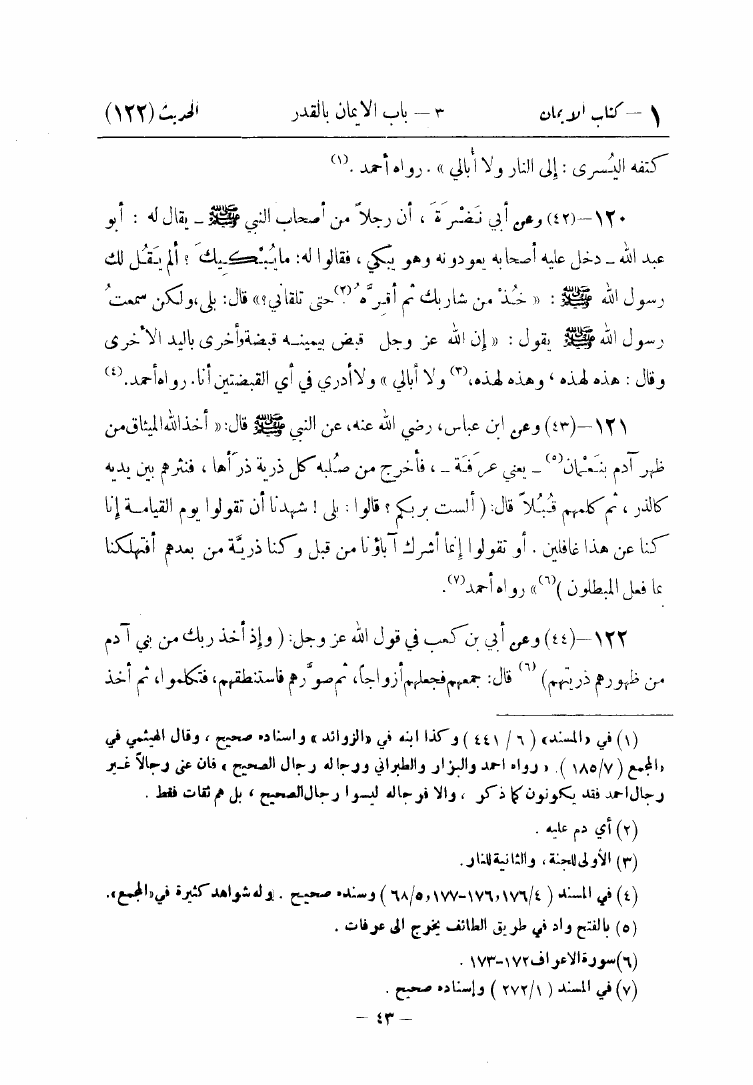 ١ – كتاب الايمان ٣ – باب الايمان بالقدر الحديث (١٢٢)
كتفه اليُسرى : إلى النار ولا أبالي » . رواه أحمد .(١)
١٢٠–(٤٢) وعن أبي نَضْرَةَ ، أن رجلاً من أصحاب النبي ﷺ – يقال له : أبو
عبد الله – دخل عليه أصحابه يعودونه وهو يبكي ، فقالوا له: مايُبْكيكَ ؟ ألم يَقُل لك
رسول الله ﷺ : « خُذْ من شاربك ثم أقِرَّهُ(٢) حتى تلقاني؟» قال: بلى،ولكن سمعتُ
رسول الله ﷺ يقول : « إن الله عز وجل قبض بيمينه قبضة وأخرى باليد الأخرى
وقال : هذه لهذه ، وهذه لهذه،(٣) ولا أبالي » ولاأدري في أي القبضتين أنا. رواه أحمد.(٤)
١٢١–(٤٣) وعن ابن عباس، رضي الله عنه، عن النبي ﷺ قال: « أخذ الله الميثاق من
ظهر آدم بنَعْمان(٥) – يعني عرفَة – ، فأخرج من صُلبه كل ذرية ذرَأها ، فنثرهم بين يديه
كالذر ، ثم كلمهم قُبُلاً قال: ( ألست بربكم ؟ قالوا : بلى ! شهدنا أن تقولوا يوم القيامة إنا
كنا عن هذا غافلين . أو تقولوا إنما أشرك آباؤنا من قبل وكنا ذريَّة من بعدهم أفتهلكنا
بما فعل المبطلون )(٦)» رواه أحمد(٧).
١٢٢–(٤٤) وعن أبي بن كعب في قول الله عز وجل: ( وإذ أخذ ربك من بني آدم
من ظهورهم ذريتهم)(٦) قال: جمعهم فجعلهم أزواجاً، ثم صوَّرهم فاستنطقهم، فتكلموا، ثم أخذ
(١) في «المسند» ( ٦ / ٤٤١ ) وكذا ابنه في «الزوائد» واسناده صحيح ، وقال الهيثمي في
«المجمع ( ٧ /١٨٥ ). « رواه احمد والبزار والطبراني ورجاله رجال الصحيح » فان عنى رجالاً غير
رجال احمد فقد يكونون كما ذكر ، والا فرجاله ليسوا رجال الصحيح ، بل هم ثقات فقط .
(٢) أي دم عليه .
(٣) الأولى للجنة، والثانية للنار.
(٤) في المسند ( ١٧٦/٤ ,١٧٦-١٧٧, ٦٨/٥ ) وسنده صحيح . وله شواهد كثيرة في «المجمع».
(٥) بالفتح واد في طريق الطائف يخرج الى عرفات .
(٦) سورة الاعراف ١٧٢-١٧٣ .
(٧) في المسند ( ٢٧٢/١ ) وإسناده صحيح .
– ٤٣ –